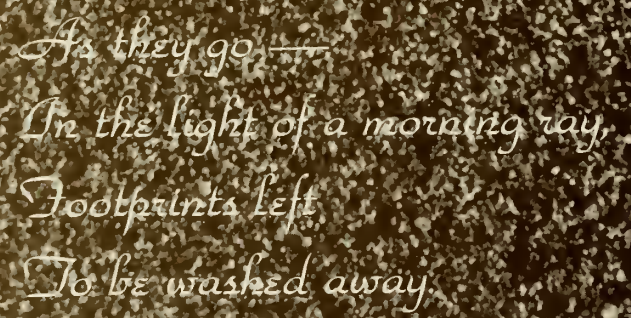 As they go —
In the light of a morning ray,
Footprints left
To be washed away.